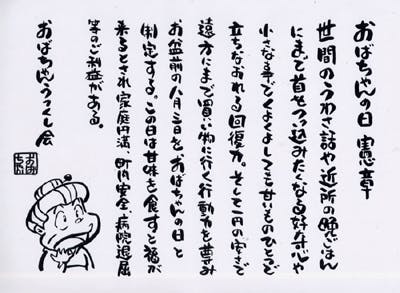 おばちゃんの日 憲章
世間のうわさ話や近所の晩ごはん
にまで首をつっ込みたくなる好奇心や
小さな事でくよくよしても甘いものひとつで
立ちなおれる回復力。そして一円の安さで
遠方にまで買い物に行く行動力を尊み
お盆前の八月三日を、おばちゃんの日と
制定する。この日は甘味を食すと福が
来るとされ家庭円満、町内安全、病院退屈
等のご利益がある。
おばちゃんうつくし会